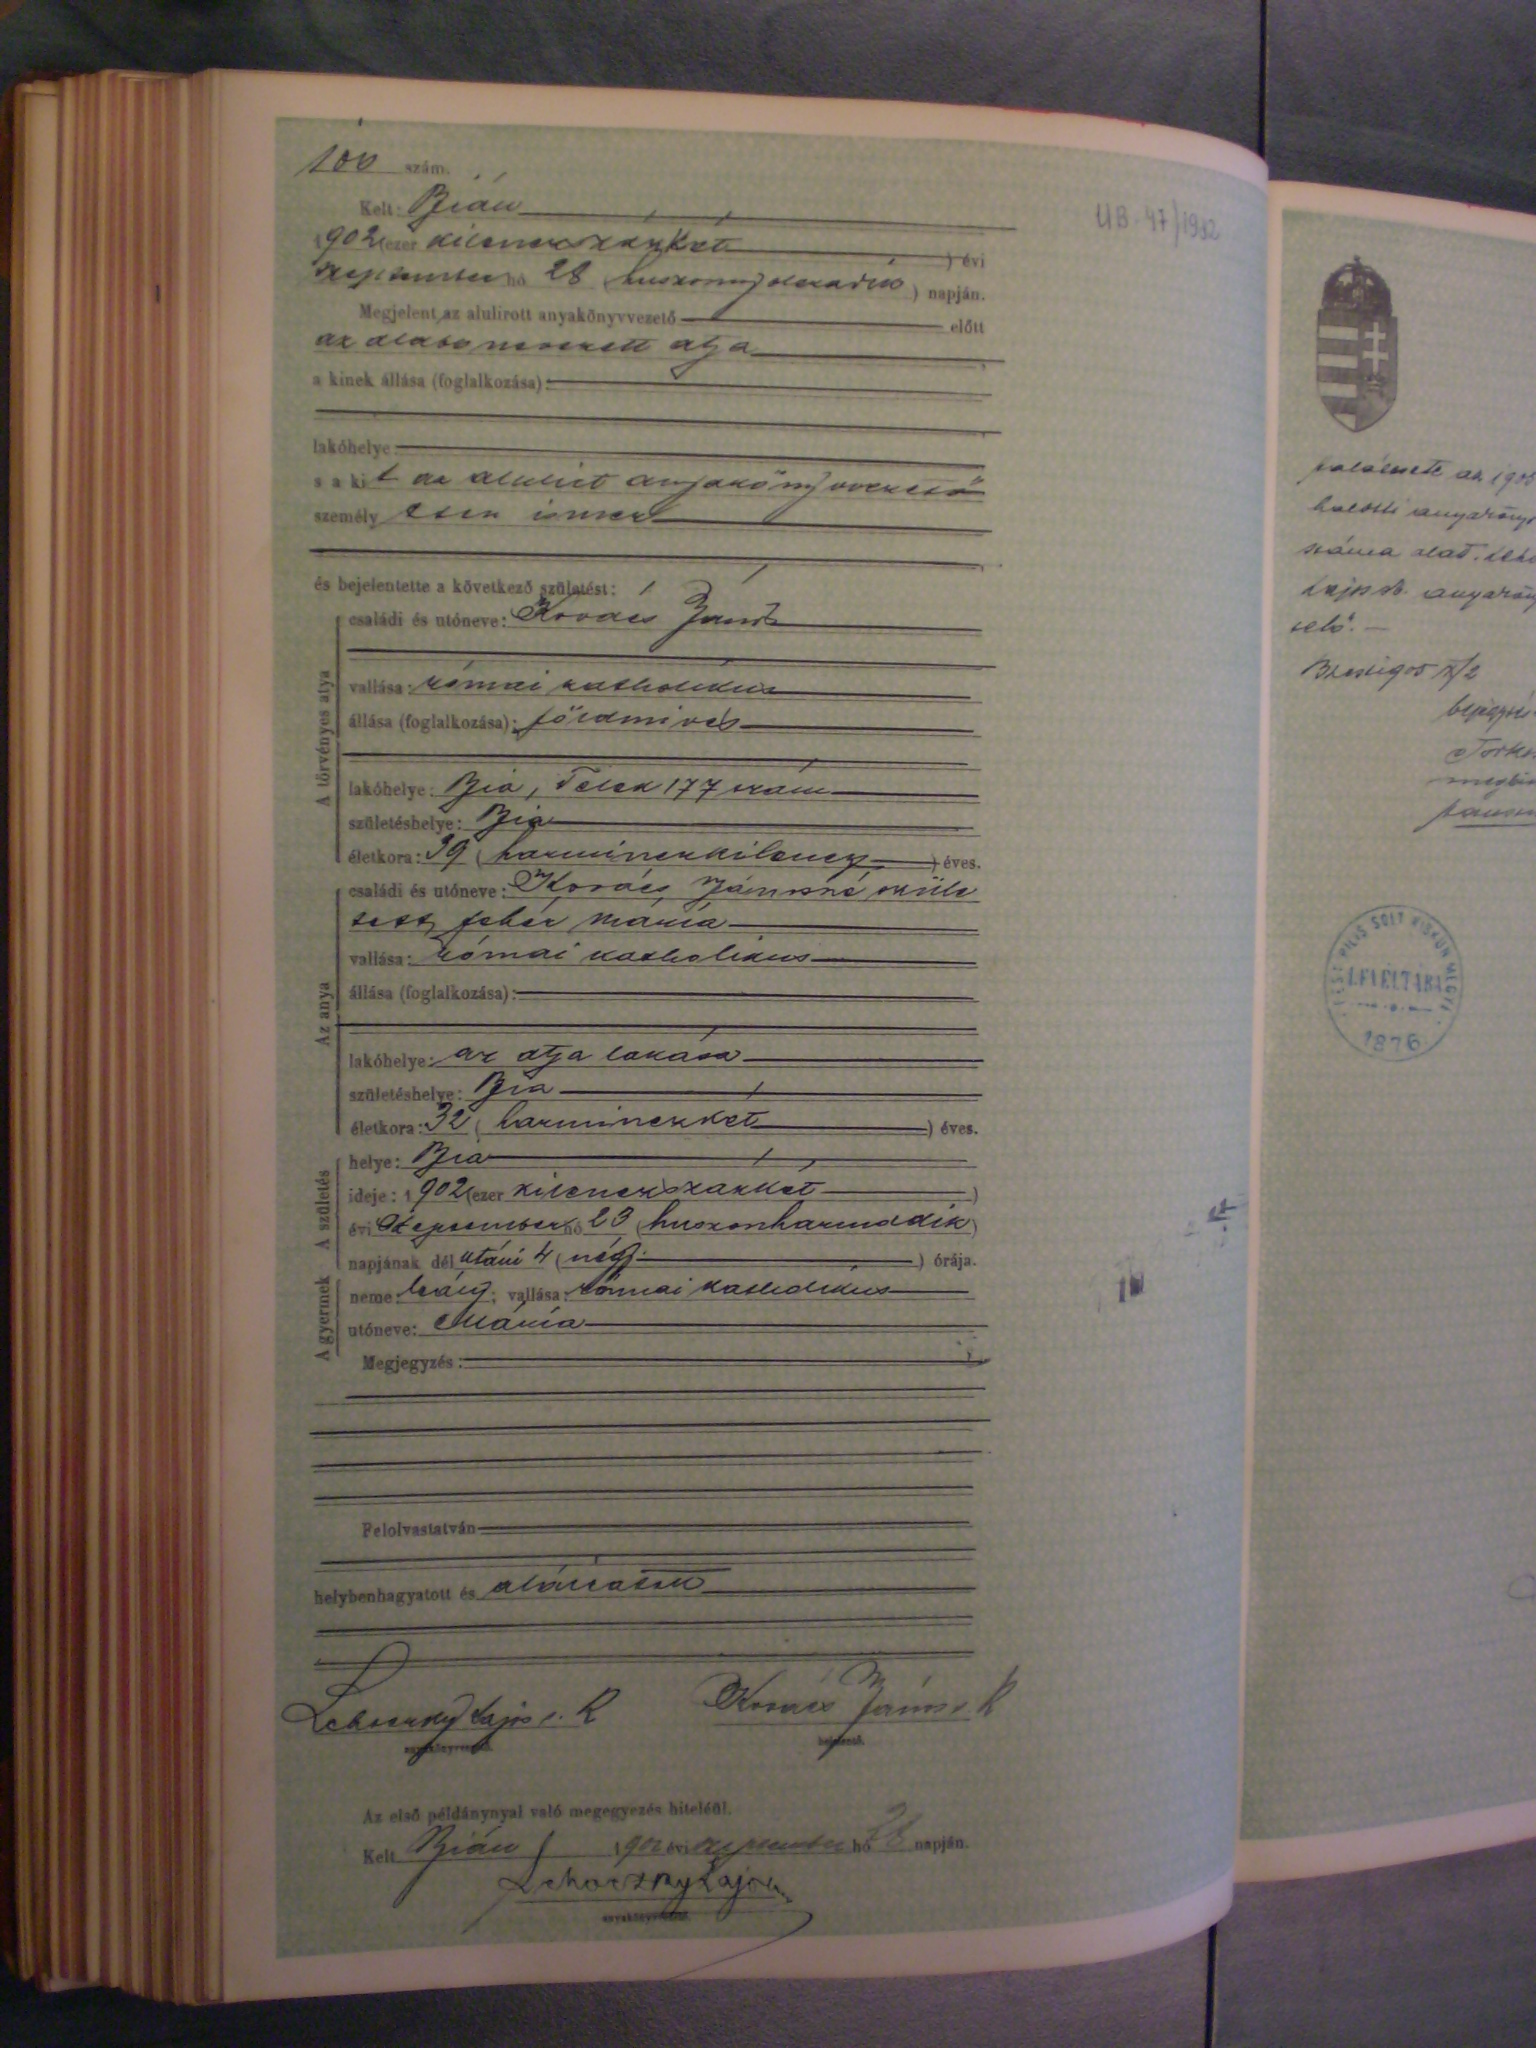 100 szám.
Kelt: Bián
1902 (ezer kilenczszázkét ) évi
szeptember hó 28 (huszonnyolczadik) napján.
Megjelent az alulirott anyakönyvvezető előtt
az alább nevezett atya
a kinek állása (foglalkozása):
lakóhelye:
s a kit az alulirt anyakönyvvezető
személyesen ismer
és bejelentette a következő születést:
A törvényes atya
családi és utóneve: Kovács János
vallása: római katholikus
állása (foglalkozása): földmives
lakóhelye: Bia, Telek 177 szám
születéshelye: Bia
életkora: 39 (harminczkilencz) éves.
Az anya
családi és utóneve: Kovács Jánosné szüle
tett fehér Mária
vallása: római katholikus
állása (foglalkozása):
lakóhelye: az atya lakása
születéshelye: Bia
életkora: 32 (harminczkét) éves.
A születés
helye: Bia
ideje: 1902 (ezer kilenczszázkét)
évi szeptember hó 23 (huszonharmadik)
napjának dél utáni 4 (négy) órája.
A gyermek
neme: leány; vallása: római katholikus
utóneve: Mária
Megjegyzés:
Felolvastatván
helybenhagyatott és aláiratott
Lehoczky Lajos s. k Kovács János s. k
anyakönyvvezető. bejelentő.
Az első példánynyal való megegyezés hiteléül.
Kelt Bián 1902 évi szeptember hó 28 napján.
Lehoczky Lajos
anyakönyvvezető.
UB. 47/1932
az 1905
halotti
száma alatt.
Lajos sk.
1905 X/2
PEST PILIS SOLT KISKUN MEGYE
LEVÉLTÁRA
1876